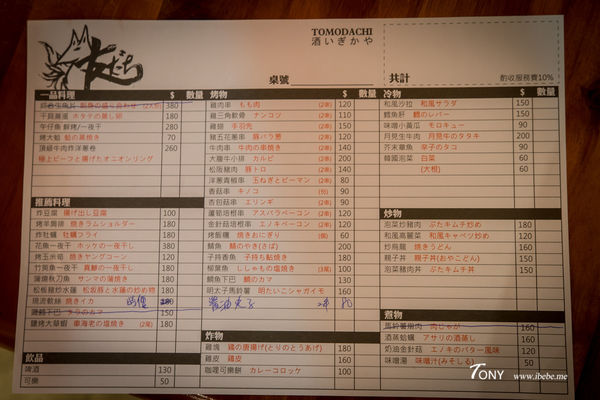 友だち
TOMODACHI
酒いざかや
桌號
共計
酌收服務費10%
一品料理 $ 數量
380
干貝蘆筍 ホタテの蒸し卵 180
午仔魚 鮮烤/一夜干 280
烤大蛤 蛤の蒸焼き 70
頂級牛肉炸洋蔥卷 260
極上ビーフと揚げたオニオンリング
推薦料理 $ 數量
炸豆腐 揚げ出し豆腐 100
烤羊肩排 焼きラムショルダー 180
炸牡蠣 牡蠣フライ 180
花魚一夜干 ホッケの一夜干し 380
烤玉米筍 焼きヤングコーン 120
竹筴魚一夜干 真鯵の一夜干し 180
蒲燒秋刀魚 サンマの蒲焼き 180
現流軟絲 焼きイカ
150
鹽烤大草蝦 車海老の塩焼き (2尾) 180
飲品 $ 數量
啤酒 130
可樂 50
烤物 $ 數量
雞肉串 もも肉 (2串) 120
雞三角軟骨 ナンコツ (2串) 110
雞翅 手羽先 (2串) 150
豬五花蔥串 豚バラ葱 (2串) 130
牛肉串 牛肉の串焼き (2串) 140
大腹牛小排 カルビ (2串) 200
松阪豬肉 豚トロ (2串) 140
洋蔥青椒串 玉ねぎとピーマン (2串) 80
香菇串 キノコ 90
杏包菇串 エリンギ (2串) 90
蘆筍培根串 アスパラベーコン (2串) 120
金針菇培根串 エノキベーコン (2串) 120
烤飯糰 焼きおにぎり (個) 60
鯖魚 鯖のやき(さば) 200
子持香魚 子持ち鮎焼き 180
柳葉魚 ししゃもの塩焼き (3尾) 100
鯛魚下巴 鯛のカマ 130
明太子馬鈴薯 明たいこシャガイモ 160
醬油丸子 2串 80
炸物 $ 數量
雞塊 鶏の唐揚げ(とりのとうあげ) 180
雞皮 鶏皮 160
咖哩可樂餅 カレーコロッケ 100
冷物 $ 數量
和風沙拉 和風サラダ 150
鱈魚肝 鱈のレバー 150
味噌小黃瓜 モロキュー 90
月見生牛肉 月見牛のタタキ 200
芥末章魚 辛子のタコ 90
韓國泡菜 白菜 60
(大根) 60
炒物 $ 數量
泡菜炒豬肉 ぶたキムチ炒め 180
和風高麗菜 和風キャベツ炒め 120
炒烏龍 焼きうどん 160
親子丼 親子丼(おやこどん) 150
泡菜豬肉丼 ぶたキムチ丼 150
煮物 $ 數量
馬鈴薯燉肉 肉じゃが 160
酒蒸蛤蠣 アサリの酒蒸し 160
奶油金針菇 エノキのバター風味 120
味噌湯 味噌汁(みそしる) 50
TONY www.ibebe.me